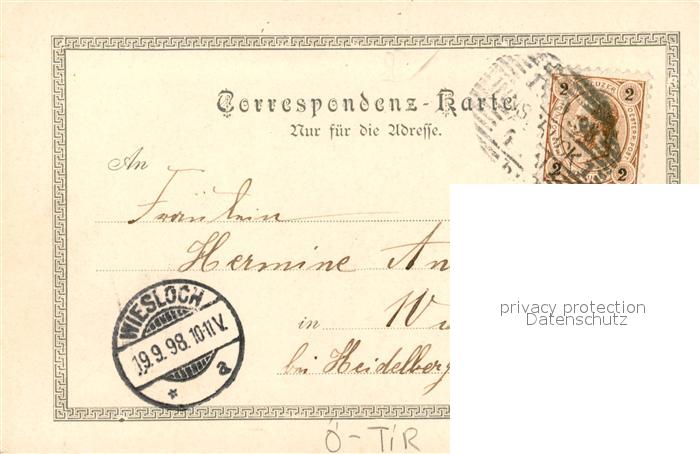 Correspondenz-Karte
Nur für die Adresse.
An
Fräulein
Hermine An
in Wi
bei Heidelberg
WIESLOCH
19.9.98. 10-11 V.
* a
2 KREUZER 2
2
2
privacy protection
Datenschutz
Ö-TIR